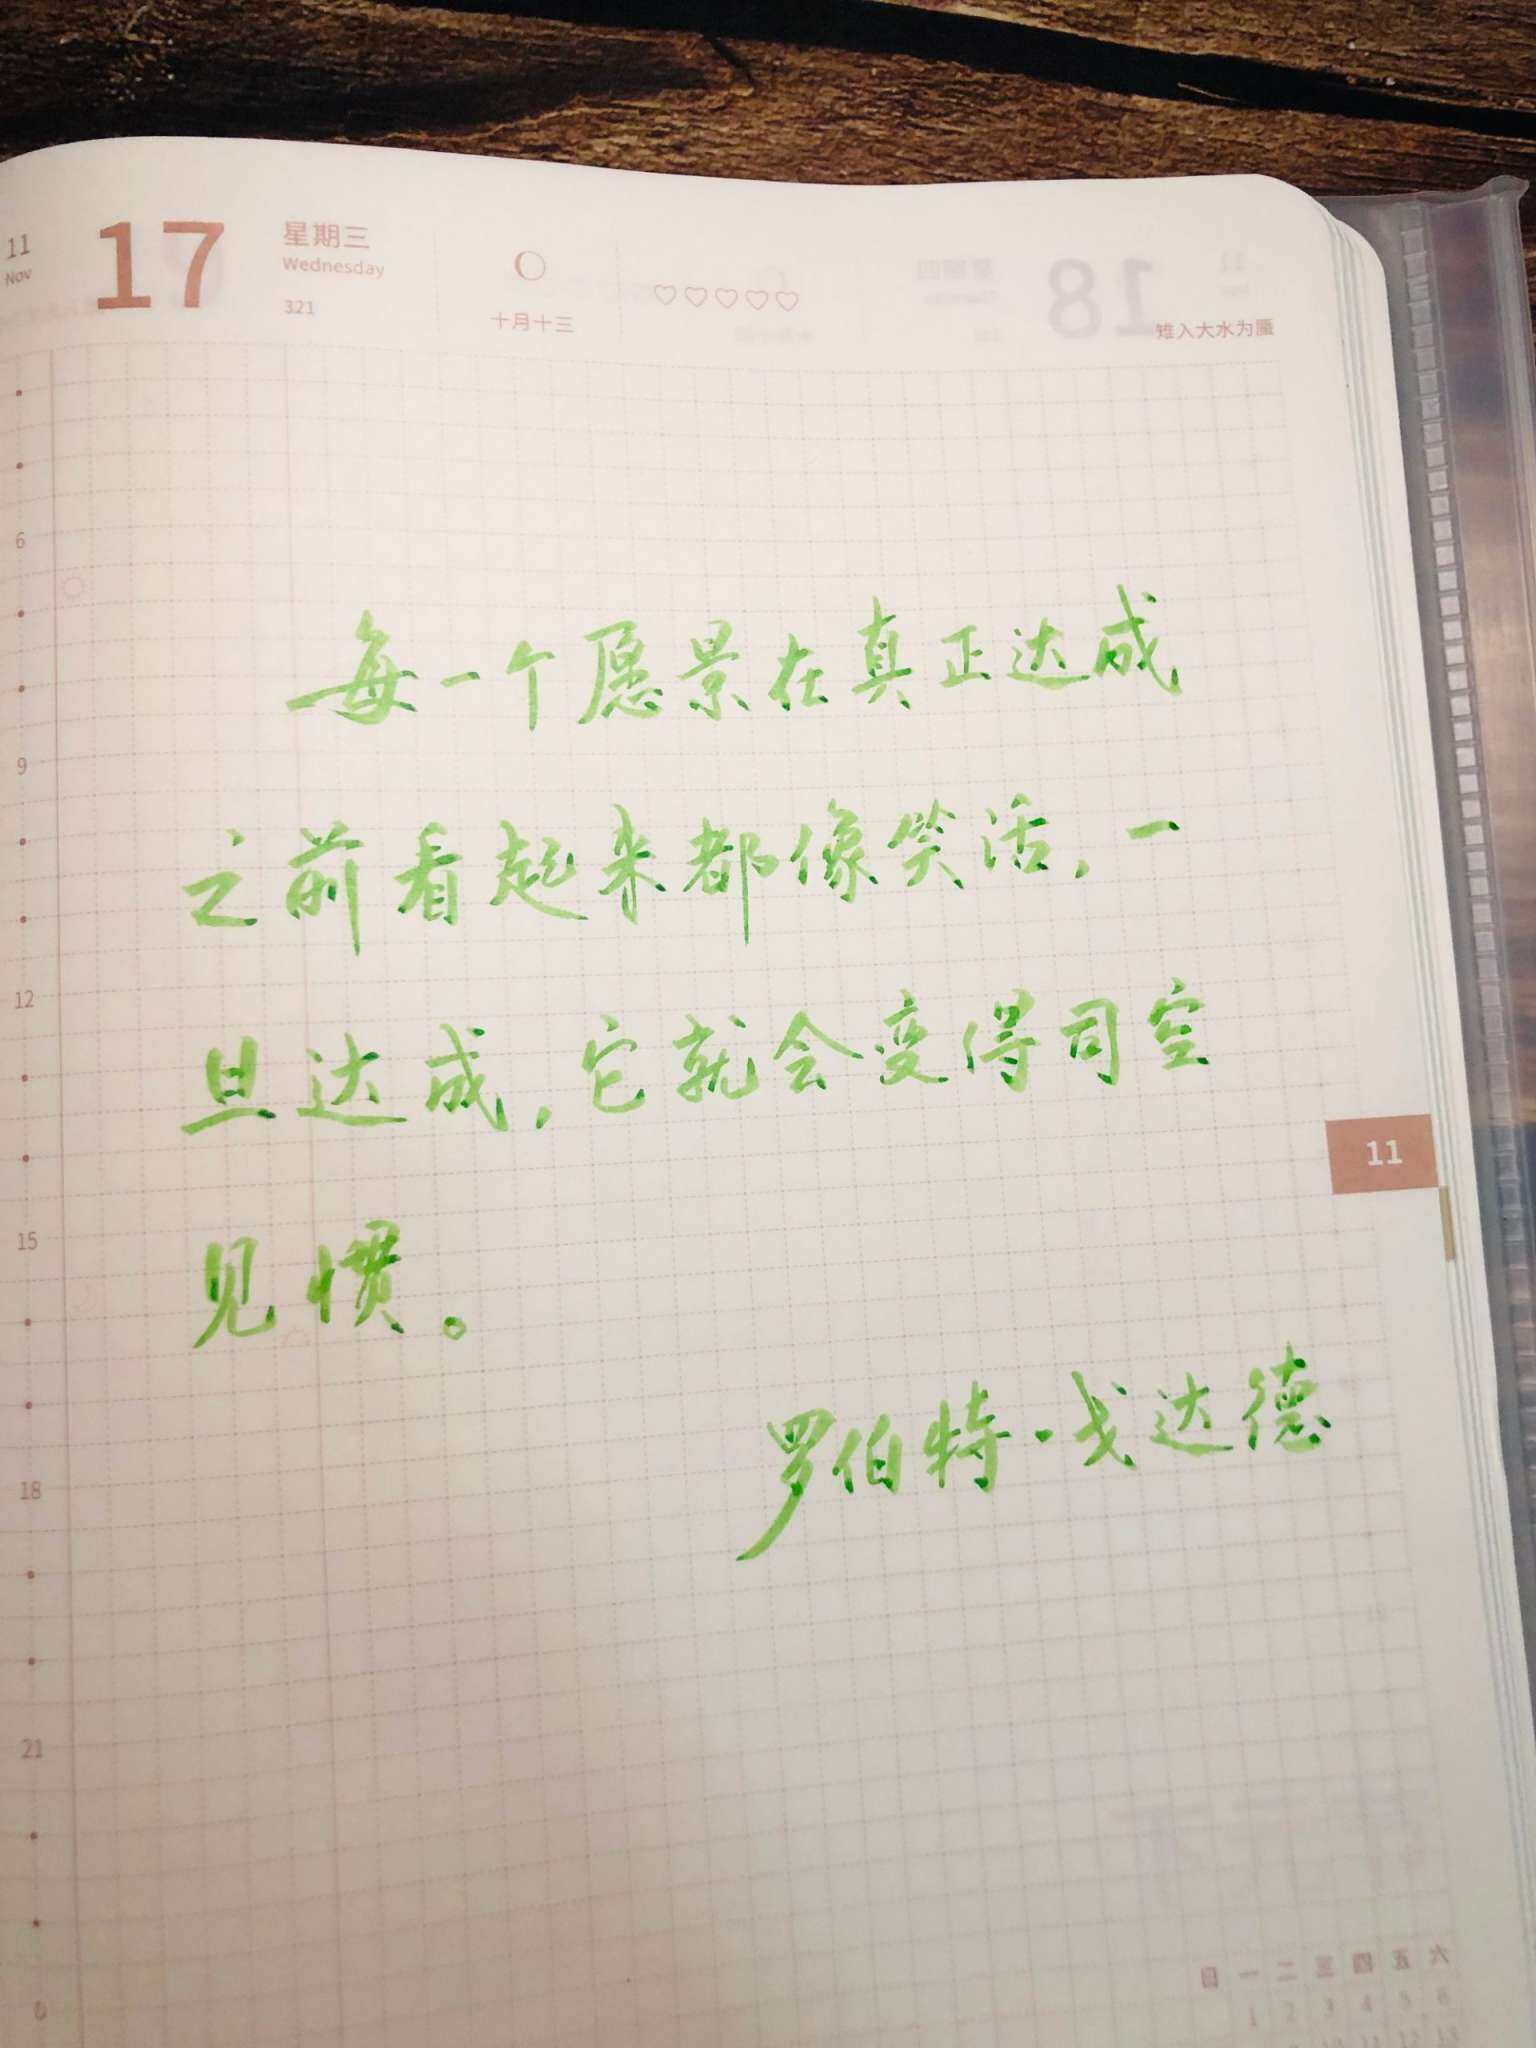 11
Nov
17
星期三
Wednesday
321
十月十三
雉入大水为蜃
6
9
12
15
18
21
0
11
每一个愿景在真正达成
之前看起来都像笑活,一
旦达成,它就会变得司空
见惯。
罗伯特·戈达德